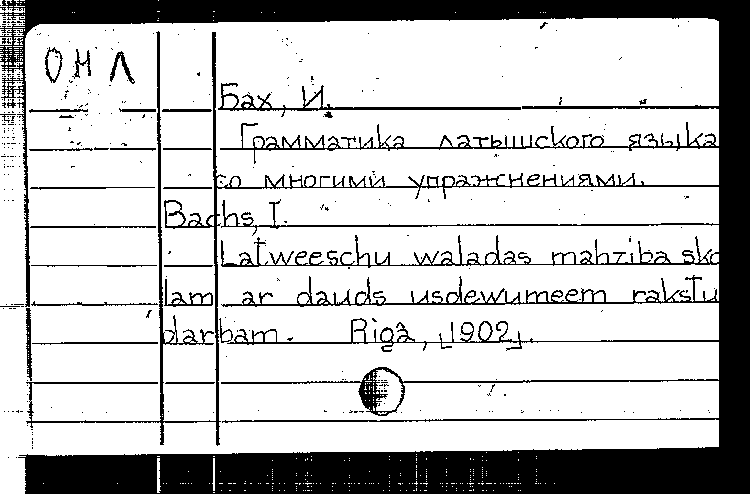 ОНЛ
Бах, И.
Грамматика латышского языка
со многими упражнениями.
Bachs, I.
Latweeschu waladas mahziba sko
lam ar dauds usdewumeem rakstu
darbam. Rigâ, [1902].